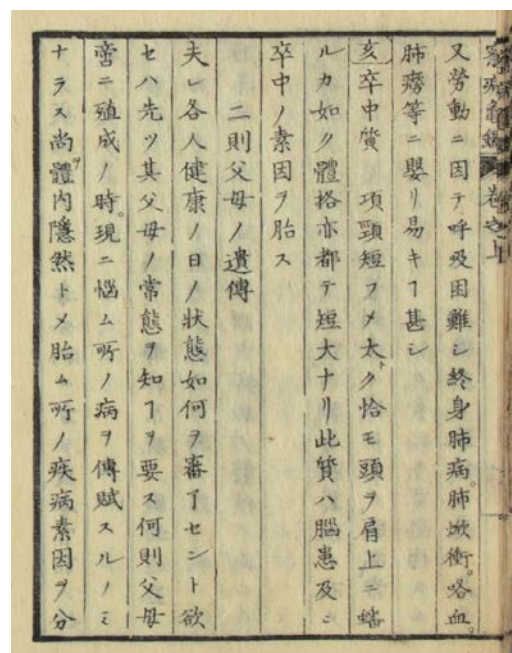 又勞動ニ因テ呼吸困難シ終身肺病。肺焮衝。咯血。
肺癆等ニ嬰リ易キヿ甚シ
亥卒中質 項頸短フメ太ク恰モ頭ヲ肩上ニ蟠
ルカ如ク體格亦都テ短大ナリ此質ハ腦患及ニ
卒中ノ素因ヲ胎ス
二則父母ノ遺傳
夫レ各人健康ノ日ノ狀態如何ヲ審了セント欲
セハ先ツ其父母ノ常態ヲ知ヿヲ要ス何則父母
啻ニ殖成ノ時。現ニ惱ム所ノ病ヲ傳賦スルノミ
ナラス尚體內隱然トメ胎ム所ノ疾病素因ヲ分